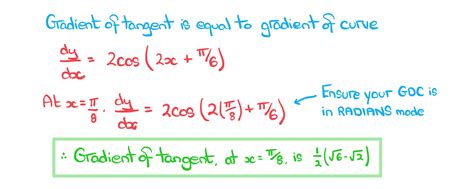 Gradient of tangent is equal to gradient of curve
dy/dx = 2cos (2x + π/6)
At x = π/8, dy/dx = 2cos (2(π/8) + π/6)
Ensure your GDC is
in RADIANS mode
∴ Gradient of tangent, at x = π/8, is 1/2(√6-√2)